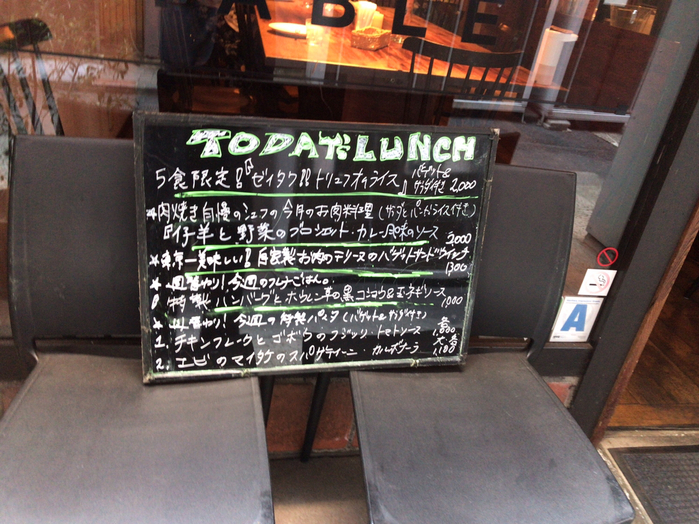 ABLE
TODAY'S LUNCH
5食限定!!『ゼイタク!!トリュフオムライス』バゲット&サラダ付き 2,000
★肉焼き自慢のシェフの今月のお肉料理(サラダとパンorライス付き)
『仔羊と野菜のブロシェット・カレー風味のソース 2,000
★東京一美味しい!自家製お肉のテリーヌのバゲットサンドウィッチ
1300
★週替わり!今週のフレンチごはん。
特製ハンバーグとホウレン草の黒コショウ&玉ネギソース 1,000
★週替わり!今週の特製パスタ(バゲット&サラダ付き)
1. チキンフレークとゴボウのフジッリ・トマトソース 1,000
2. エビのマイタケのスパゲティーニ・カルボナーラ 1,100
A